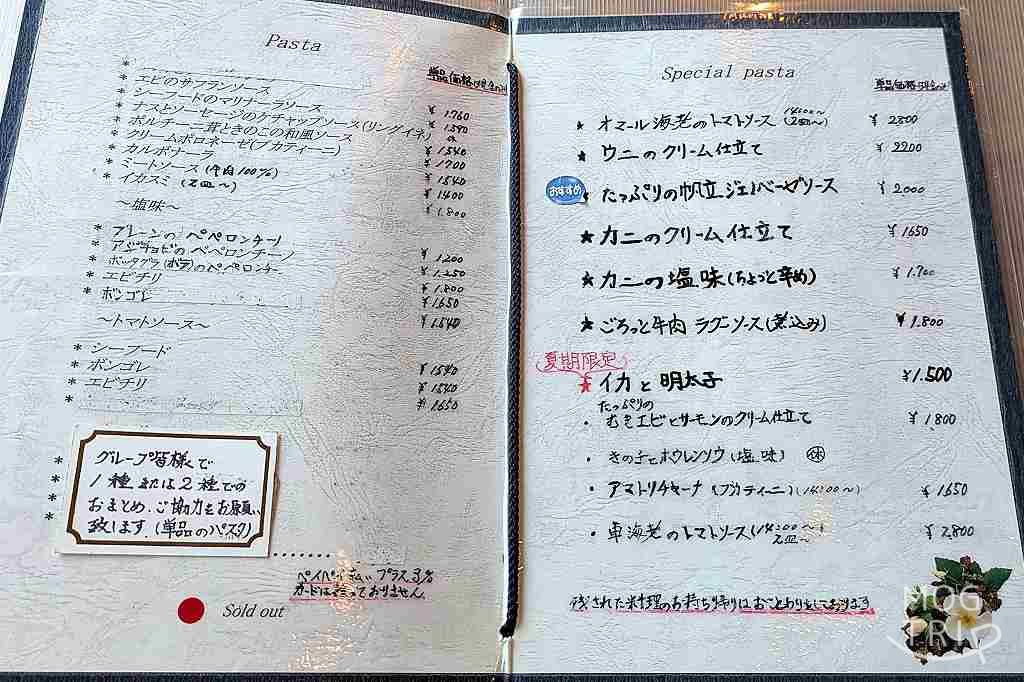 Pasta
単品価格は税込み
* エビのサフランソース ¥1760
* シーフードのマリナーラソース ¥1540
* ナスとソーセージのケチャップソース(リングイネ)
* ポルチーニ茸ときのこの和風ソース ¥1540
* クリームボロネーゼ(ブカティーニ) ¥1700
* カルボナーラ ¥1540
* ミートソース(牛肉100%) ¥1400
* イカスミ(2皿〜) ¥1.800
〜塩味〜
* プレーンのペペロンチーノ ¥1.200
* アンチョビのペペロンチーノ ¥1.250
* ボッタルガ(ボラ)のペペロンチーノ ¥1.800
* エビチリ ¥1650
* ボンゴレ ¥1.540
〜トマトソース〜
* シーフード ¥1540
* ボンゴレ ¥1540
* エビチリ ¥1650
*
*
*
*
*
グループ皆様で
1種または2種での
おまとめ、ご協力をお願い
致します。(単品のパスタ)
ペイペイ プラス3%
カードは扱っておりません。
Sold out
Special pasta
単品価格は税込み
★ オマール海老のトマトソース (14:00〜 2皿〜) ¥2800
★ ウニのクリーム仕立て ¥2200
おすすめ
★ たっぷりの帆立ジェノベーゼソース ¥2000
★ カニのクリーム仕立て ¥1650
★ カニの塩味(ちょっと辛め) ¥1.700
★ ごろっと牛肉ラグーソース(煮込み) ¥1.800
夏期限定
★ イカと明太子 ¥1.500
たっぷりの
・ むきエビとサーモンのクリーム仕立て ¥1.800
・ きの子とホウレンソウ(塩味) 休
・ アマトリチャーナ(ブカティーニ)(14:00〜) ¥1650
・ 車海老のトマトソース(14:00〜 2皿〜) ¥2,800
残された料理のお持ち帰りはおことわりをしております
MOG
TRIP